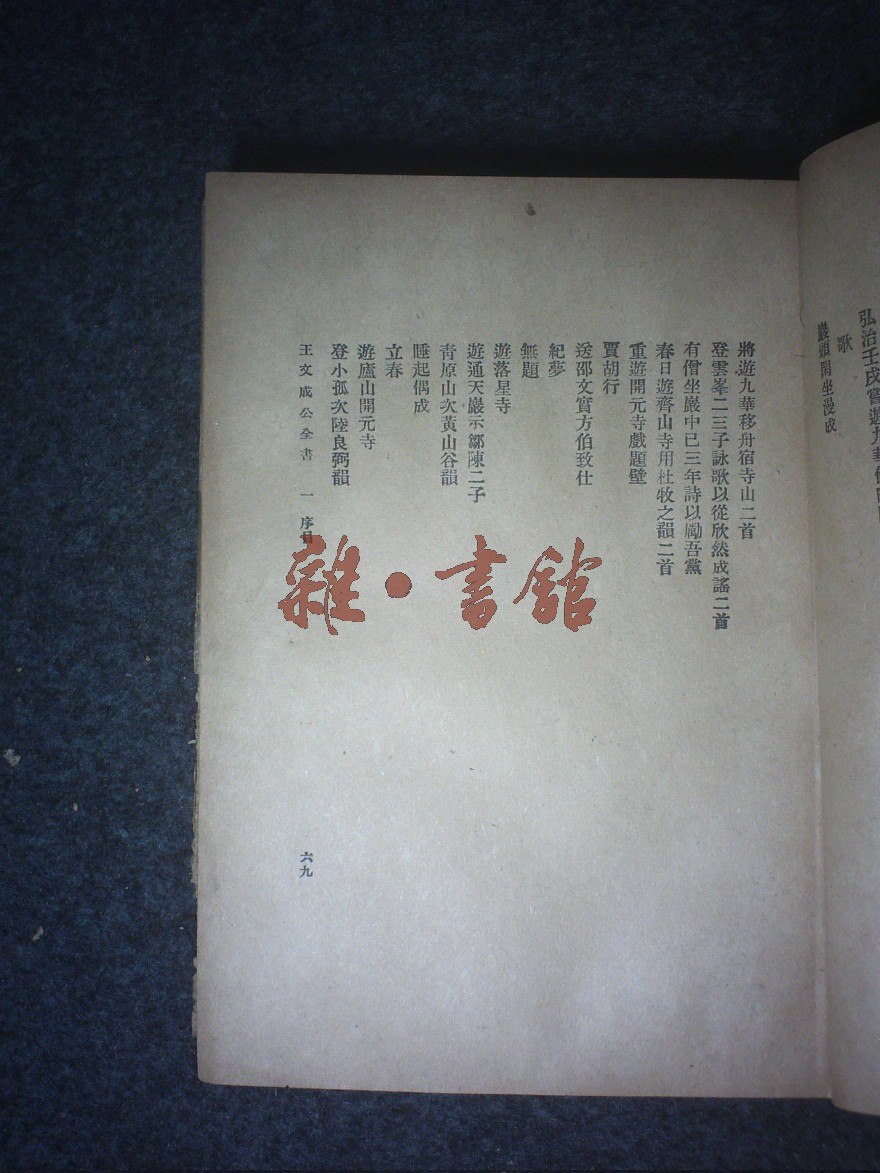 弘治壬戌嘗遊九華
歌
巖頭閒坐漫成
將遊九華移舟宿寺山二首
登雲峯二三子詠歌以從欣然成謠二首
有僧坐巖中已三年詩以勵吾黨
春日遊齊山寺用杜牧之韻二首
重遊開元寺戲題壁
賈胡行
送邵文實方伯致仕
紀夢
無題
遊落星寺
遊通天巖示鄒陳二子
青原山次黃山谷韻
睡起偶成
立春
遊廬山開元寺
登小孤次陸良弼韻
王文成公全書 一 序目
六九
雜·書館